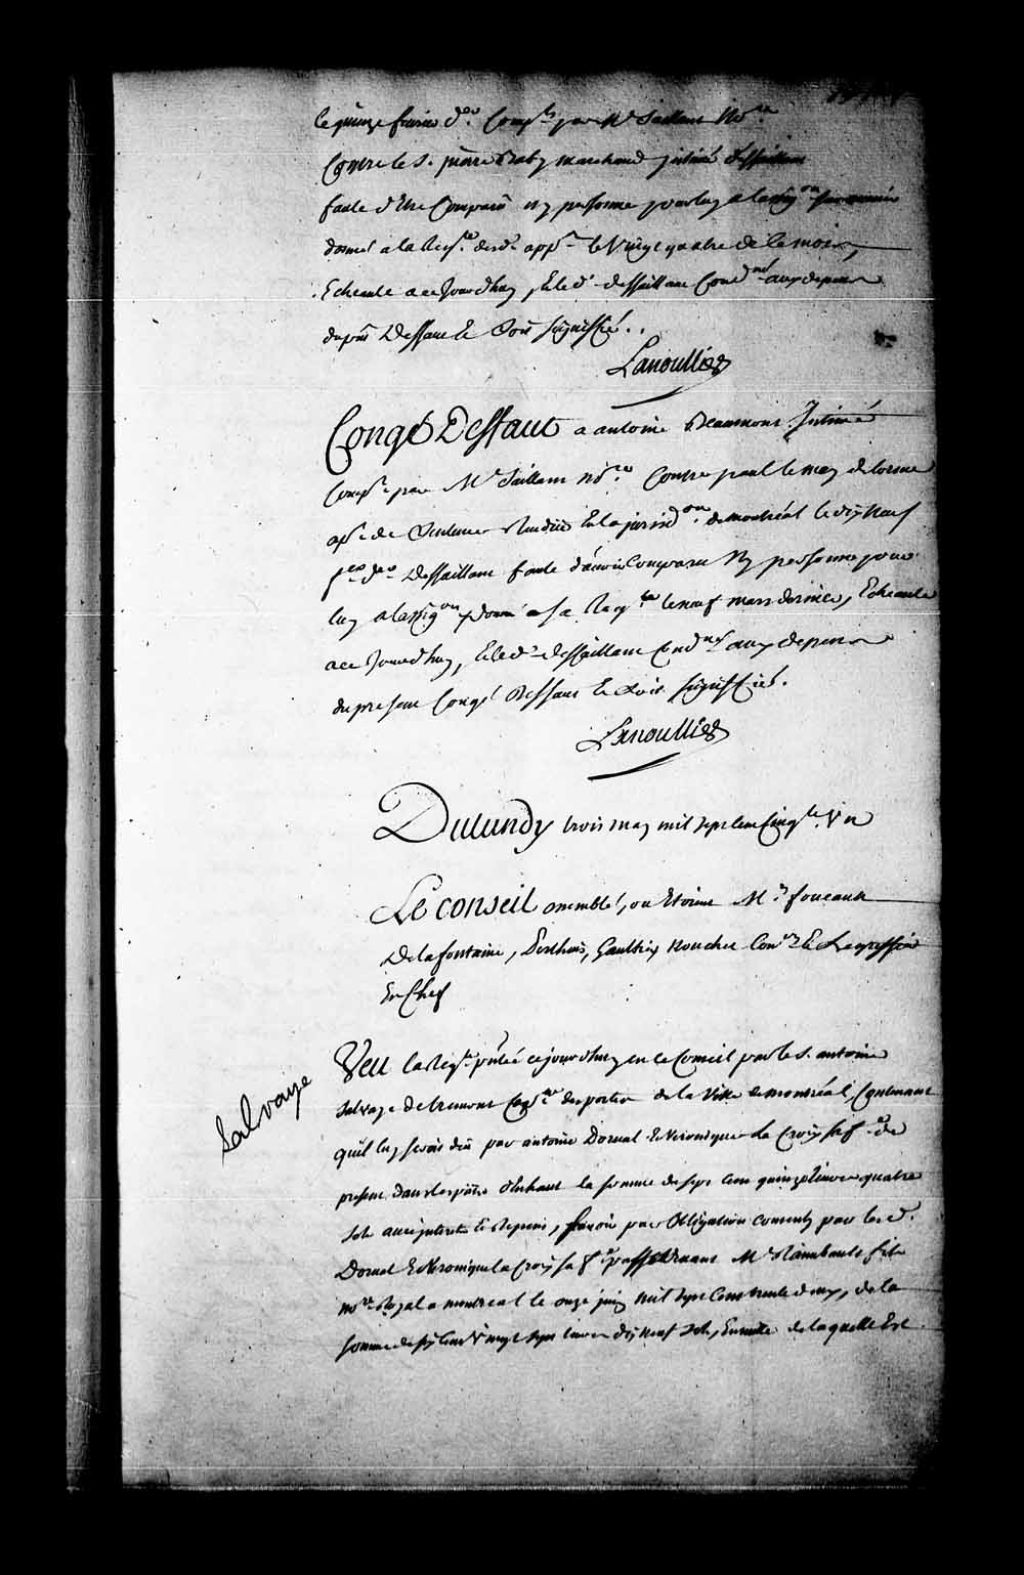 le quinze fevrier d.er Comp.t par M.e Saillant No.re
Contre le S. pierre Baby marchand intimé deffaillant
faute d'être Comparu ny personne pour luy a lassig.on
donné a la Req.te dud. app.t le Vingt quatre de le mois,
Echeante a ce Jourd'huy, & led. deffaillant Cond.né aux depens
du pnt Deffaut & Soit signiffié.
Lanoullier
Congé Deffaut a antoine Beaumont Intimé
Comp.t par M.e Saillant No.re Contre paul lemay delorme
ap.t de Sentence Rendüe En la jurisd.on de montréal le dix Neuf
Deffaillant faute d'avoir Comparu Ny personne pour
luy a lassig.on donné a Sa Req.te le neuf mars dernier, Echeante
a ce Jourd'huy, & led. deffaillant Cond.né aux depens
du present Congé Deffaut & Soit signiffié.
Lanoullier
Du Lundy trois may mil sept cent Cinq.te Un
Le Conseil assemblé, ou Etoient M.rs foucault
De lafontaine, Perthuis, Gaultier Nouchet Con.ers & Le greffier
En Chef
Salvaye
Veu la Req.te pntée ce jourd'huy en ce Conseil par le S. antoine
Salvaye de tremont Cap.ne des portes de la Ville de montréal, Contenant
qu'il luy seroit dû par antoine Dornal & Veronique la Croix sa f.e de
present dans les païs d'Enhaut la somme de sept cent quinze livres quatre
sols avec interets & depens, sçavoir par Obligation consenty par led.
Dornal & Veronique la Croix sa f.e passé devant M.e Raimbault fils
no.re Royal a montreal le onze juin mil sept Cent trente deux, de la
somme de six Cent Vingt sept livres dix neuf sols, Ensuite de laquelle Est